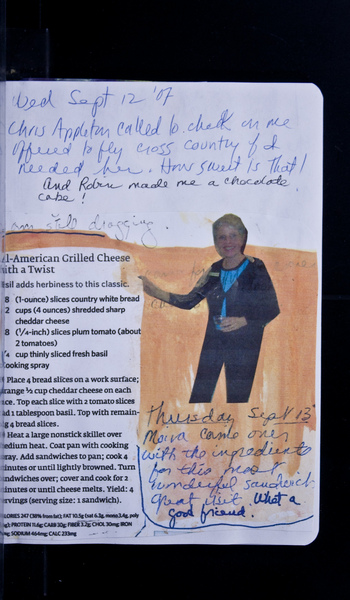 Wed Sept 12 '07
Chris Appleton called to check on me
Offered to fly cross country if I
needed her. How sweet is that!
And Robin made me a chocolate
cake!
am still dragging.
ll-American Grilled Cheese
ith a Twist
asil adds herbiness to this classic.
8 (1-ounce) slices country white bread
2 cups (4 ounces) shredded sharp
cheddar cheese
8 (1/4-inch) slices plum tomato (about
2 tomatoes)
1/4 cup thinly sliced fresh basil
Cooking spray
Place 4 bread slices on a work surface;
rrange 1/2 cup cheddar cheese on each
ice. Top each slice with 2 tomato slices
nd 1 tablespoon basil. Top with remain-
g 4 bread slices.
Heat a large nonstick skillet over
edium heat. Coat pan with cooking
ray. Add sandwiches to pan; cook 4
inutes or until lightly browned. Turn
ndwiches over; cover and cook for 2
inutes or until cheese melts. Yield: 4
rvings (serving size: 1 sandwich).
ALORIES 247 (38% from fat); FAT 10.5g (sat 6.3g, mono 3.4g, poly
PROTEIN 11.6g; CARB 30g; FIBER 3.2g; CHOL 30mg; IRON
mg; SODIUM 464mg; CALC 233mg
Thursday Sept 13
Moira came over
with the ingredients
for this most
wonderful sandwich
Great visit. What a
good friend.